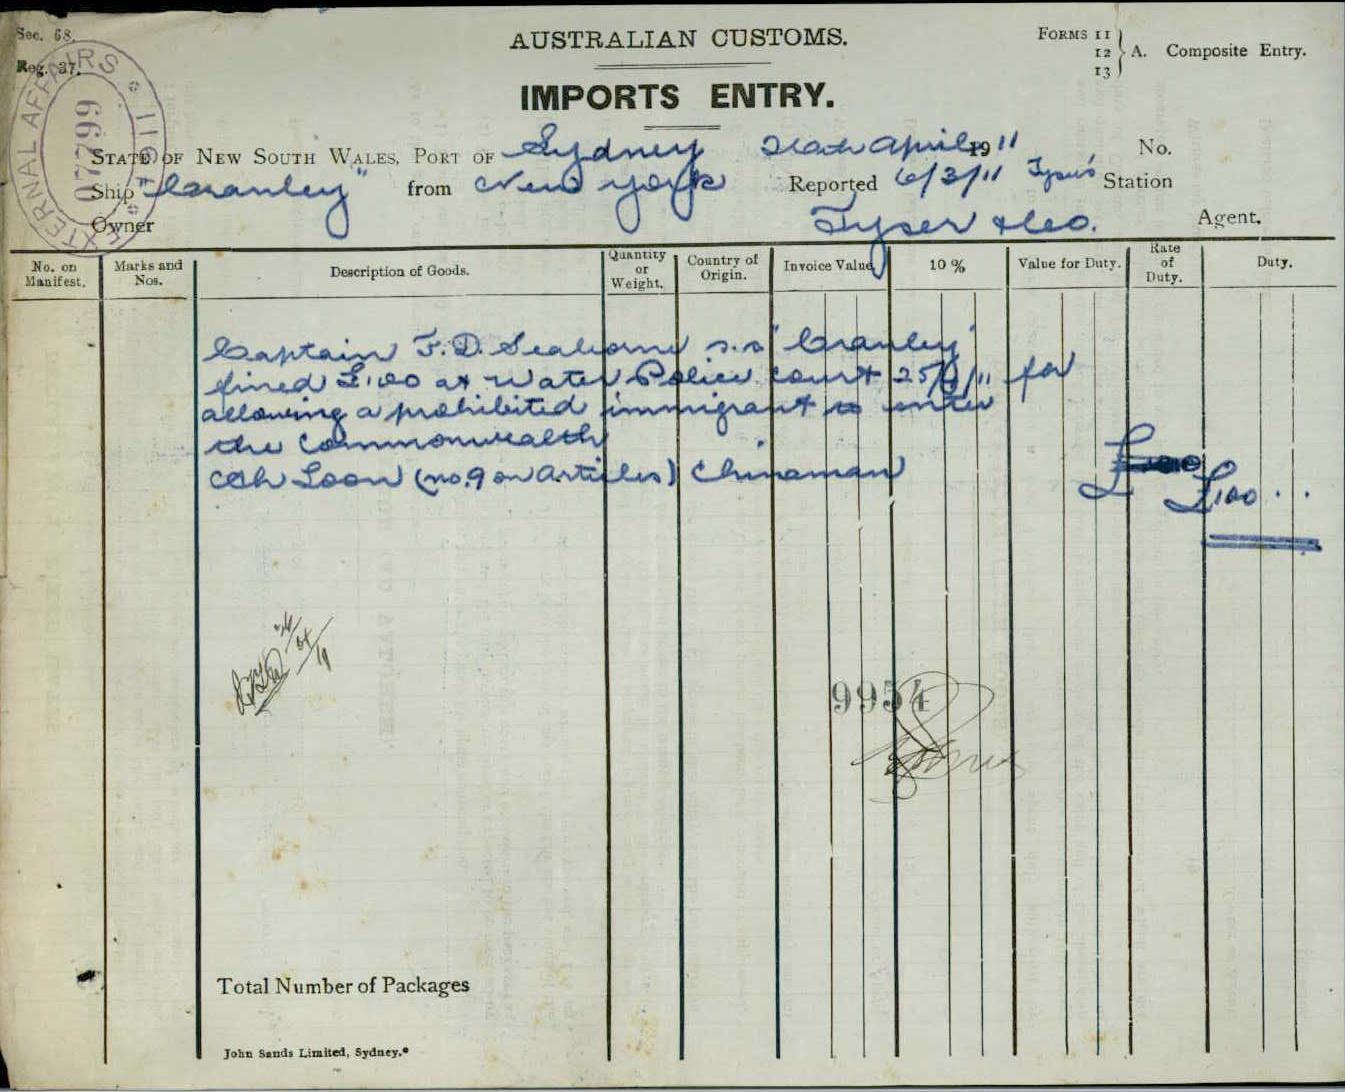 Sec. 68.
Reg. 37.
EXTERNAL AFFAIRS * 1911 *
07799
AUSTRALIAN CUSTOMS.
FORMS 11
12 } A. Composite Entry.
13
IMPORTS ENTRY.
STATE OF NEW SOUTH WALES, PORT OF Sydney April 1911 No.
Ship "Cranley" from New York Reported 6/3/11 Station
Owner Tyser & Co. Agent.
No. on Manifest. Marks and Nos. Description of Goods. Quantity or Weight. Country of Origin. Invoice Value 10 % Value for Duty. Rate of Duty. Duty.
Captain F. D. s.s "Cranley"
fined £100 at Water Police Court 25/ /11 for
allowing a prohibited immigrant to enter
the Commonwealth
Ah Loon (no. 9 on Articles) Chinaman
£100 . .
9954
Total Number of Packages
John Sands Limited, Sydney.